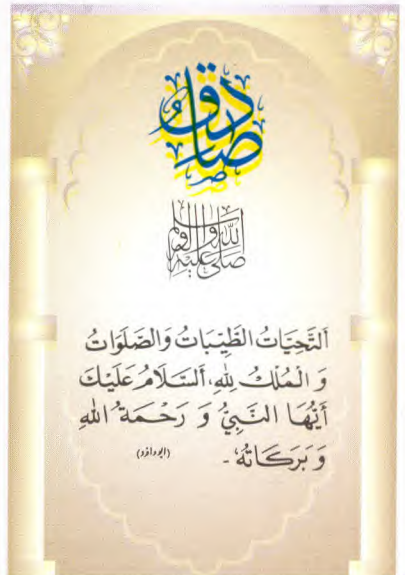 صَادِقٌ
صلى الله عليه وآله وسلم
اَلتَّحِيَّاتُ الطَّيِّبَاتُ وَالصَّلَوَاتُ
وَ الْمُلْكُ لِلّٰهِ، اَلسَّلَامُ عَلَيْكَ
أَيُّهَا النَّبِيُّ وَ رَحْمَةُ اللهِ
وَ بَرَكَاتُهٗ - (ابوداؤد)